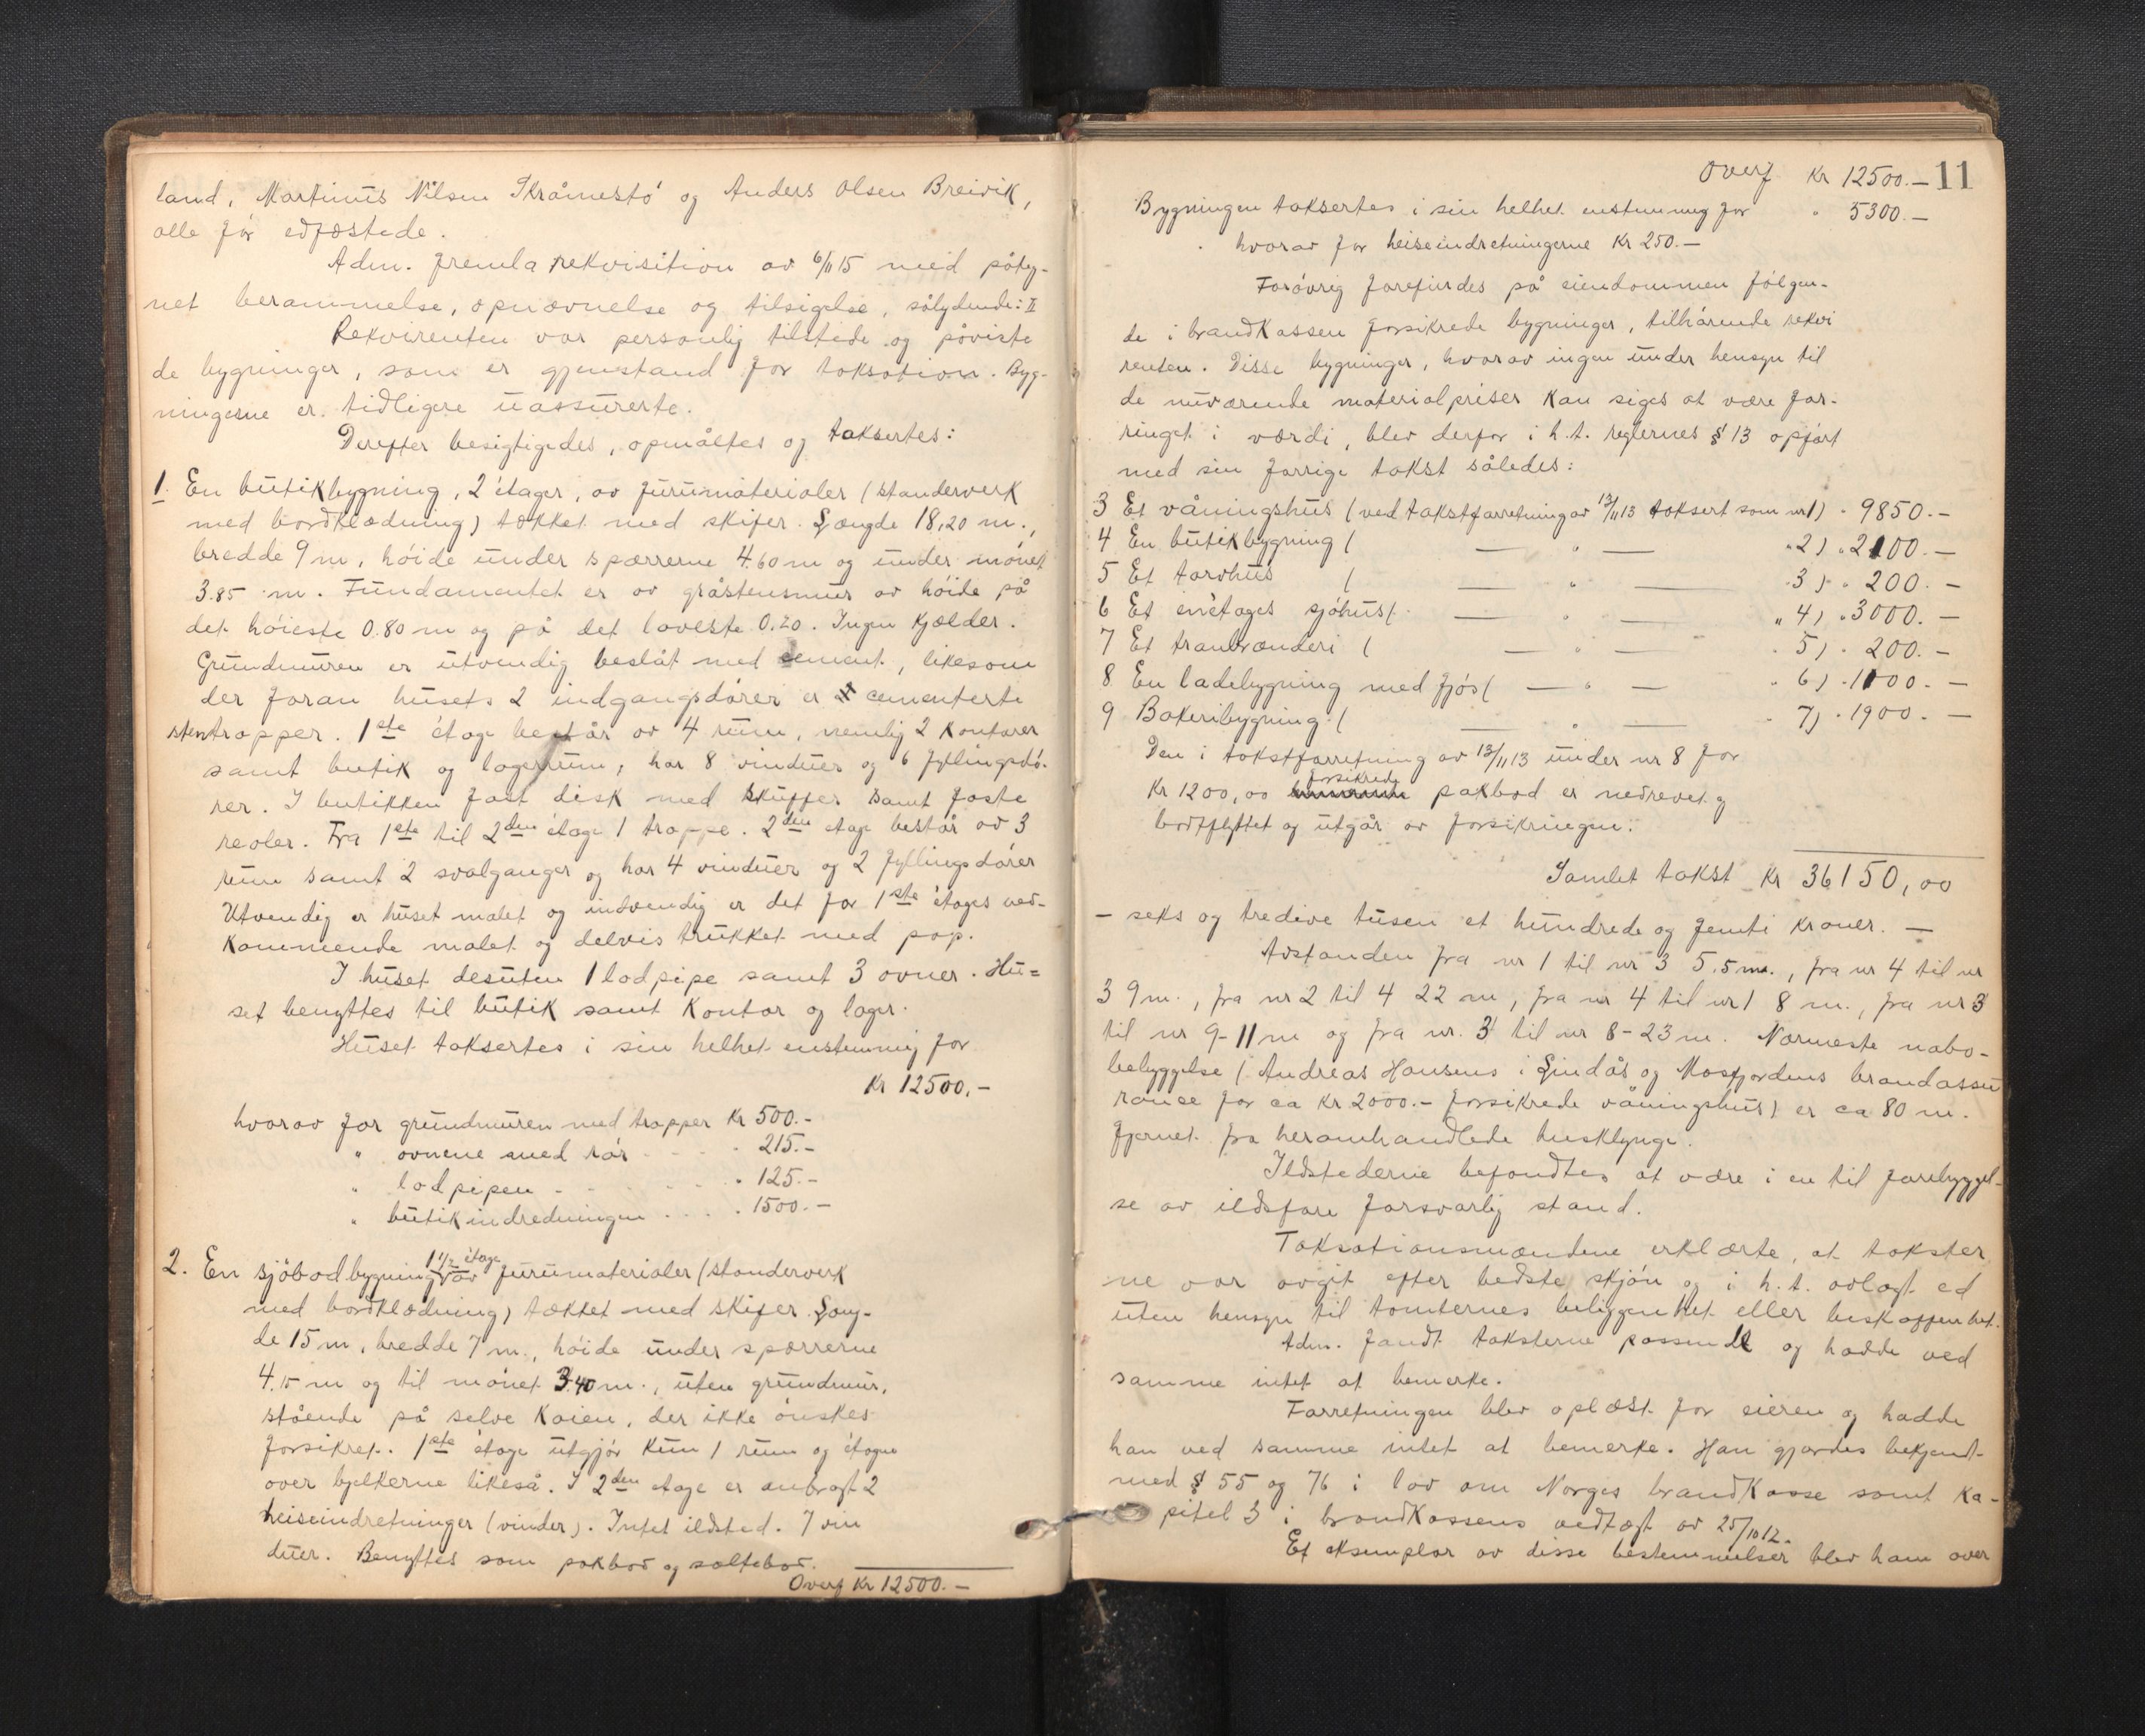 land, Martinus Nilsen Skråmestö og Anders Olsen Breivik,
alle før edfæstede.
Adm. fremla rekvisition av 6/11 15 med påteg-
net berammelse, opnævnelse og tilsigelse, sålydende: II
Rekvirenten var personlig tilstede og påviste
de bygninger, som er gjenstand for taksation. Byg-
ningerne er tidligere uassurerte.
Derefter besigtigedes, opmåltes og taksertes:
1. En butikbygning, 2 étager, av furumaterialer (standerverk
med bordklædning) tækket med skifer. Længde 18,20 m.,
bredde 9 m, höide under spærrerne 4.60 m og under mönet
3.85 m. Fundamentet er av gråstensmur av höide på
det höieste 0.80 m og på det laveste 0.20. Ingen kjælder.
Grundmuren er utvendig beslåt med cement, likesom
der foran husets 2 indgangsdörer er cementerte
stentrapper. 1ste étage består av 4 rum, nemlig 2 kontorer
samt butik og lagerrum, har 8 vinduer og 6 fyllingsdö-
rer. I butikken fast disk med skuffer samt faste
reoler. Fra 1ste til 2den étage 1 trappe. 2den etage består av 3
rum samt 2 svalganger og har 4 vinduer og 2 fyllingsdörer
Utvendig er huset malet og indvendig er det for 1ste étages ved-
kommende malet og delvis trukket med pap.
I huset desuten 1 lodpipe samt 3 ovner. Hu=
set benyttes til butik samt kontor og lager.
Huset taksertes i sin helhet enstemmig for
Kr 12500.-
hvorav for grundmuren med trapper Kr 500.-
" ovnene med rör . . . " 215.-
" lodpipen - . . . . " 125.-
" butikindredningen . . . . 1500.-
2. En sjöbodbygning 1 1/2 étage av furumaterialer (standerverk
med bordklædning) tækket med skifer. Læng-
de 15 m, bredde 7 m., höide under spærrerne
4.15 m og til mönet 3.40 m., uten grundmur,
stående på selve kaien, der ikke önskes
forsikret. 1ste étage utgjör kun 1 rum og étagen
over bjelkerne likeså. I 2den etage er anbragt 2
heiseindretninger (vinder). Intet ildsted. 7 vin
duer. Benyttes som pakbod og saltebod.
Overf Kr 12500.-
Overf Kr 12500.- 11
Bygningen taksertes i sin helhet enstemmig for " 5300.-
hvorav for heiseindretningerne Kr 250.-
Forövrig forefindes på eiendommen fölgen-
de i brandkassen forsikrede bygninger, tilhörende rekvi
renten. Disse bygninger, hvorav ingen under hensyn til
de nuværende materialpriser kan siges at være for-
ringet i værdi, blev derfor i h.t. reglernes § 13 opfört
med sin forrige takst således:
3 Et våningshus (ved takstforretning av 13/11 13 taksert som nr 1) " 9850.-
4 En butikbygning ( — " — " 2) " 2100.-
5 Et torvhus ( — " — " 3) " 200.-
6 Et enétages sjöhus ( — " — " 4) " 3000.-
7 Et tranbrænderi ( — " — " 5) " 200.-
8 En ladebygning med fjös ( — " — " 6) " 1100.-
9 Bakeribygning ( — " — " 7) " 1900.-
Den i takstforretning av 13/11 13 under nr 8 for
Kr 1200,00 forsikrede pakbod er nedrevet og
bortflyttet og utgår av forsikringen.
Samlet takst Kr 36150,00
- seks og tredive tusen et hundrede og femti kroner. -
Avstanden fra nr 1 til nr 3 5.5 m., fra nr 4 til nr
3 9 m., fra nr 2 til 4 22 m, fra nr 4 til nr 1 8 m., fra nr 3
til nr 9 - 11 m og fra nr. 3 til nr 8 - 23 m. Nærmeste nabo-
bebyggelse (Andreas Hansens i Lindås og Masfjordens brandassu
rance for ca Kr 2000.- forsikrede våningshus) er ca 80 m.
fjernet fra heromhandlede husklynge.
Ildstederne befandtes at være i en til forebyggel-
se av ildsfare forsvarlig stand.
Taksationsmændene erklærte, at takster
ne var avgit efter bedste skjön og i h.t. avlagt ed
uten hensyn til tomternes beliggenhet eller beskaffenhet.
Adm. fandt taksterne passende og hadde ved
samme intet at bemerke.
Forretningen blev oplæst for eieren og hadde
han ved samme intet at bemerke. Han gjordes bekjendt
med § 55 og 76 i lov om Norges brandkasse samt ka-
pitel 3 i brandkassens vedtægt av 25/10 12.
Et eksemplar av disse bestemmelser blev ham over